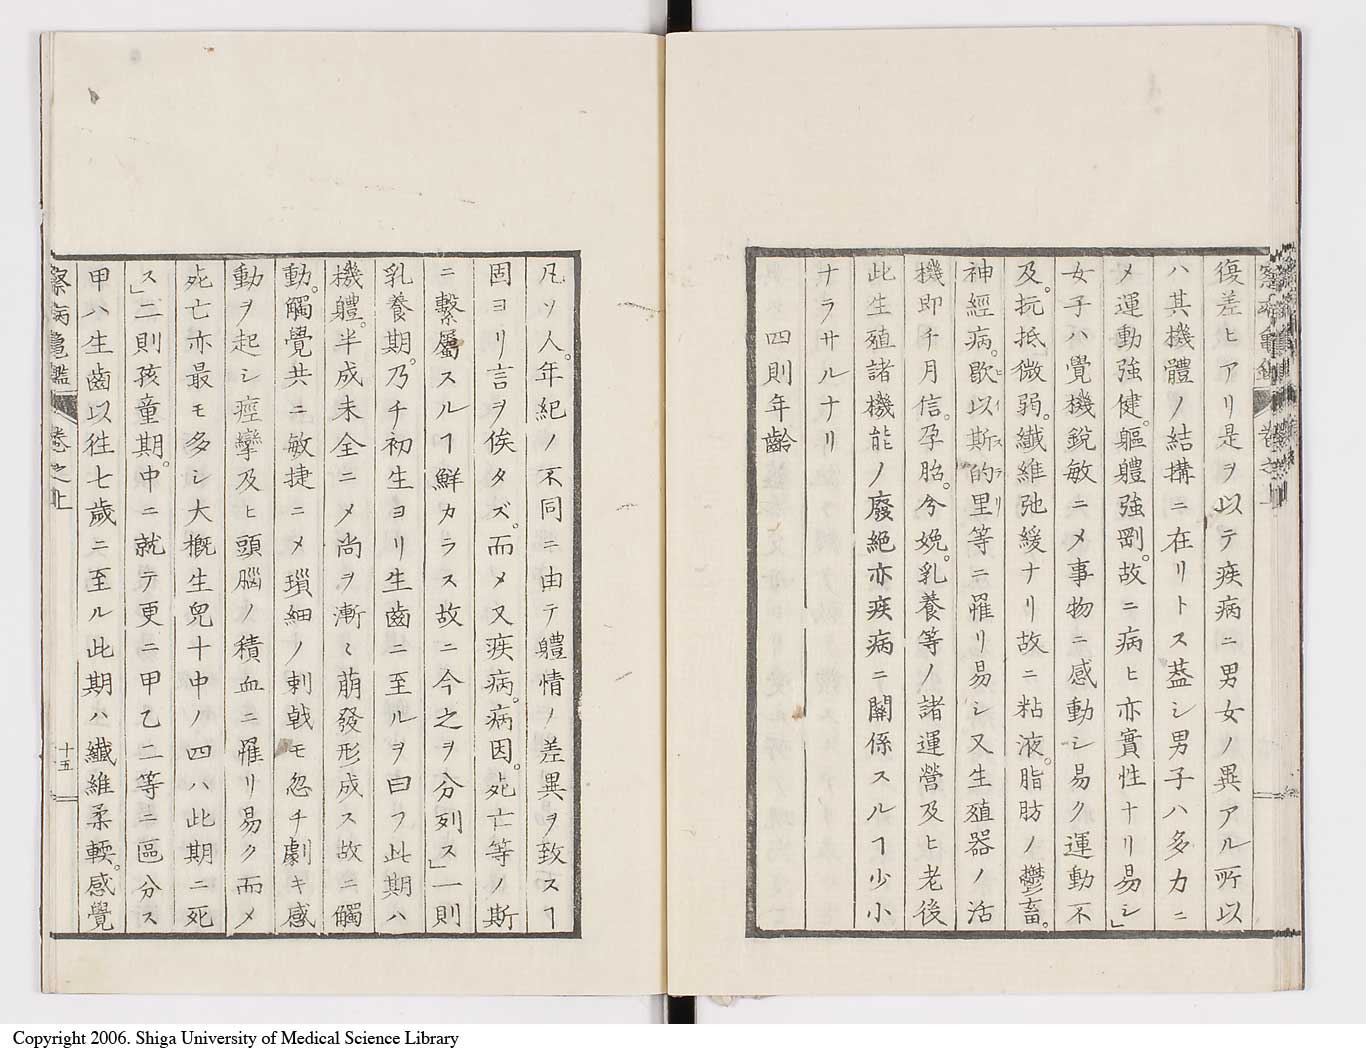 復差ヒアリ是ヲ以テ疾病ニ男女ノ異アル所以
ハ其機體ノ結搆ニ在リトス葢シ男子ハ多力ニ
メ運動強健。軀體強剛。故ニ病ヒ亦實性ナリ易シ」
女子ハ覺機銳敏ニメ事物ニ感動シ易ク運動不
及。抗抵微弱。纎維弛緩ナリ故ニ粘液。脂肪ノ鬱畜。
神經病。歇以斯的里等ニ罹リ易シ又生殖器ノ活
ヒイステリ
機即チ月信。孕胎。分娩。乳養等ノ諸運營及ヒ老後
此生殖諸機能ノ廢絕亦疾病ニ關係スルヿ少小
ナラサルナリ
四則年齡
凡ソ人。年紀ノ不同ニ由テ體情ノ差異ヲ致スヿ
固ヨリ言ヲ俟タズ。而メ又疾病。病因。死亡等ノ斯
ニ繫屬スルヿ鮮カラス故ニ今之ヲ分列ス」一則
乳養期。乃チ初生ヨリ生齒ニ至ルヲ曰フ此期ハ
機體。半成未全ニメ尚ヲ漸〻萠發形成ス故ニ觸
動。觸覺共ニ敏捷ニメ瑣細ノ刺戟モ忽チ劇キ感
動ヲ起シ痙攣及ヒ頭腦ノ積血ニ罹リ易ク而メ
死亡亦最モ多シ大概生兒十中ノ四ハ此期ニ死
ス」二則孩童期。中ニ就テ更ニ甲乙二等ニ區分ス
甲ハ生齒以徃七歲ニ至ル此期ハ纎維柔輭。感覺
察病龜鑑 卷之上
十五
Copyright 2006. Shiga University of Medical Science Library